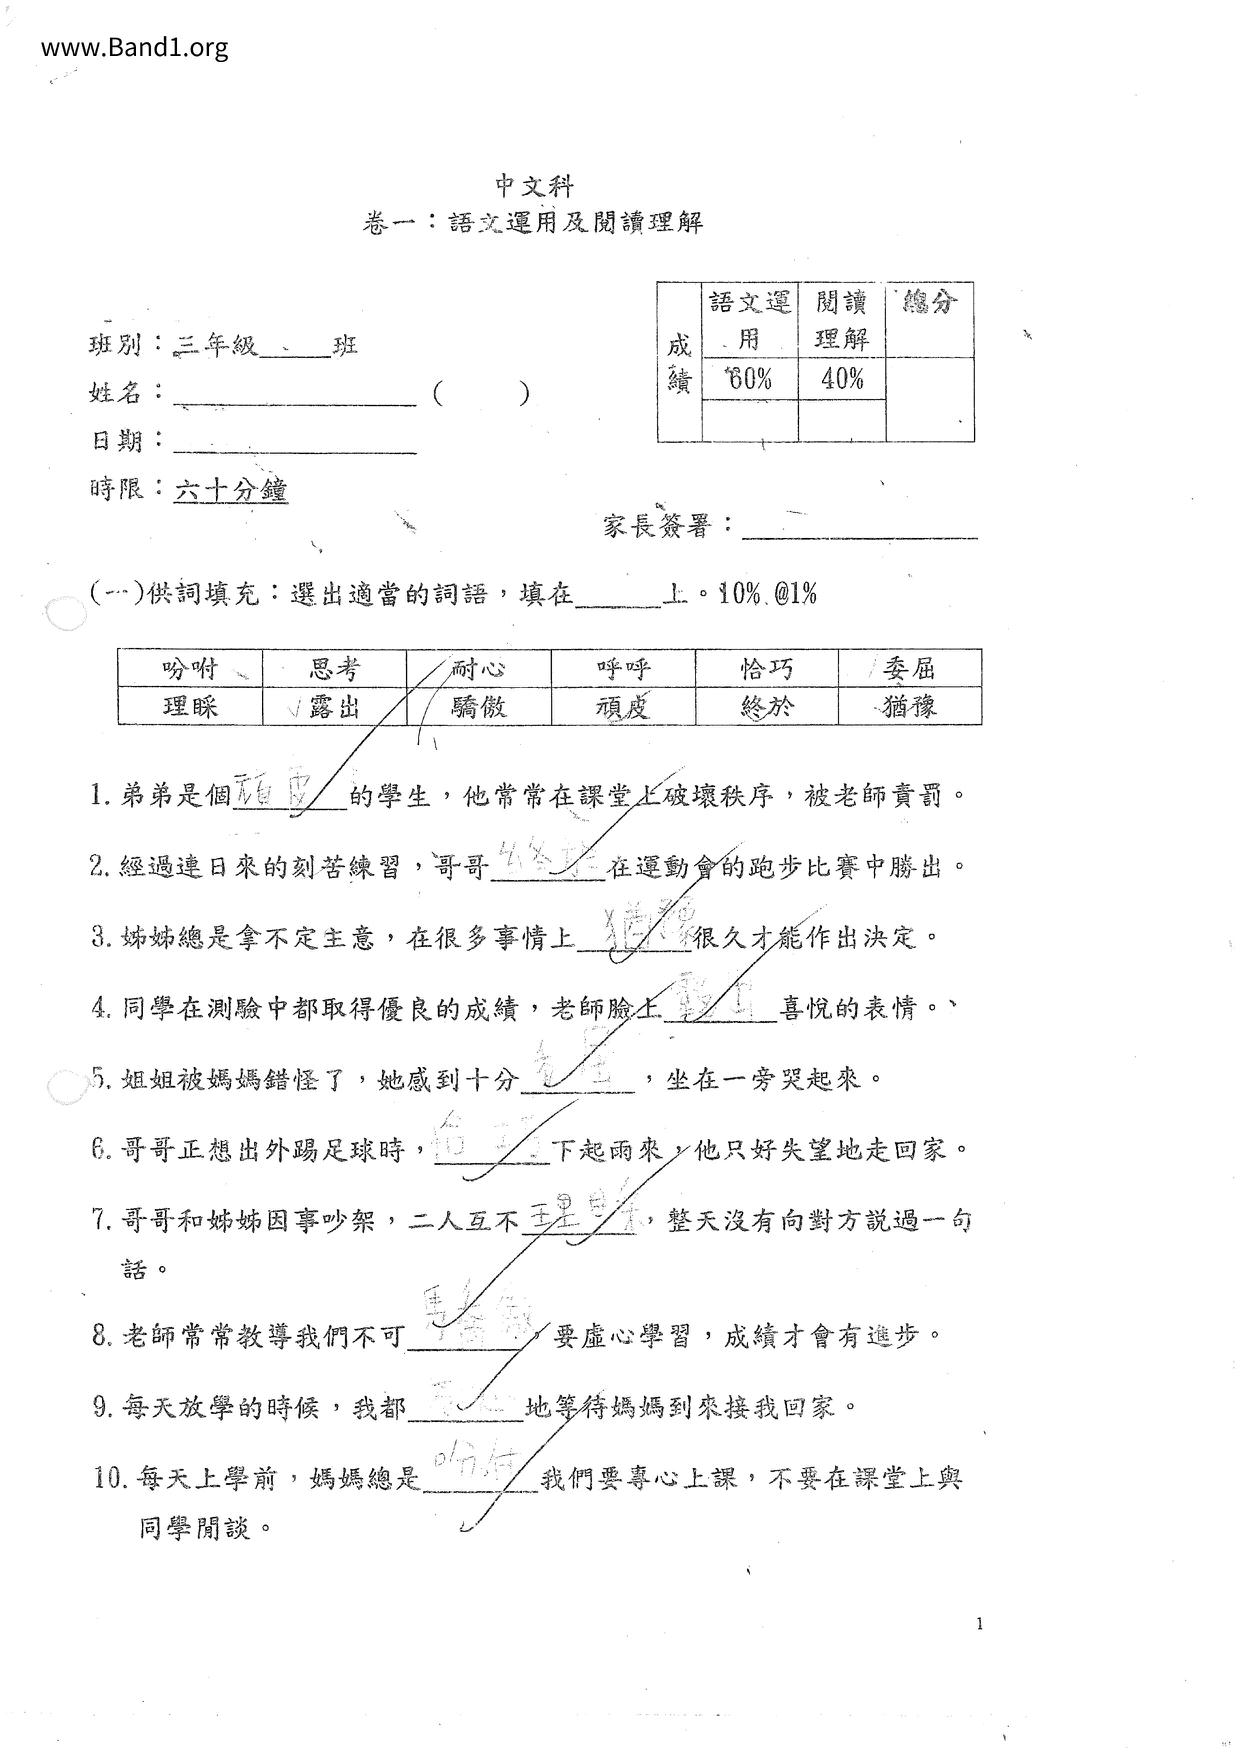 www.Band1.org
中文科
卷一：語文運用及閱讀理解
成績 語文運用 閱讀理解 總分
60% 40%
班別：三年級_____班
姓名：_________________ (     )
日期：_________________
時限：六十分鐘
家長簽署：________________
(一)供詞填充：選出適當的詞語，填在______上。10% @1%
吩咐 思考 耐心 呼呼 恰巧 委屈
理睬 露出 驕傲 頑皮 終於 猶豫
1. 弟弟是個頑皮的學生，他常常在課堂上破壞秩序，被老師責罰。
2. 經過連日來的刻苦練習，哥哥終於在運動會的跑步比賽中勝出。
3. 姊姊總是拿不定主意，在很多事情上猶豫很久才能作出決定。
4. 同學在測驗中都取得優良的成績，老師臉上露出喜悅的表情。
5. 姐姐被媽媽錯怪了，她感到十分委屈，坐在一旁哭起來。
6. 哥哥正想出外踢足球時，恰巧下起雨來，他只好失望地走回家。
7. 哥哥和姊姊因事吵架，二人互不理睬，整天沒有向對方説過一句
話。
8. 老師常常教導我們不可驕傲，要虛心學習，成績才會有進步。
9. 每天放學的時候，我都________地等待媽媽到來接我回家。
10. 每天上學前，媽媽總是吩咐我們要專心上課，不要在課堂上與
同學閒談。
1